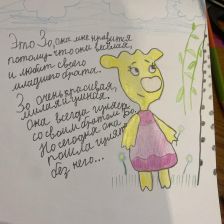 Это Зо, она мне нравится
потому-что она весёлая,
и любит своего
младшего брата.
Зо очень красивая,
милая и умная.
Она всегда гуляет
со своим братом Бо.
Но сегодня она
пошла гулять
без него...